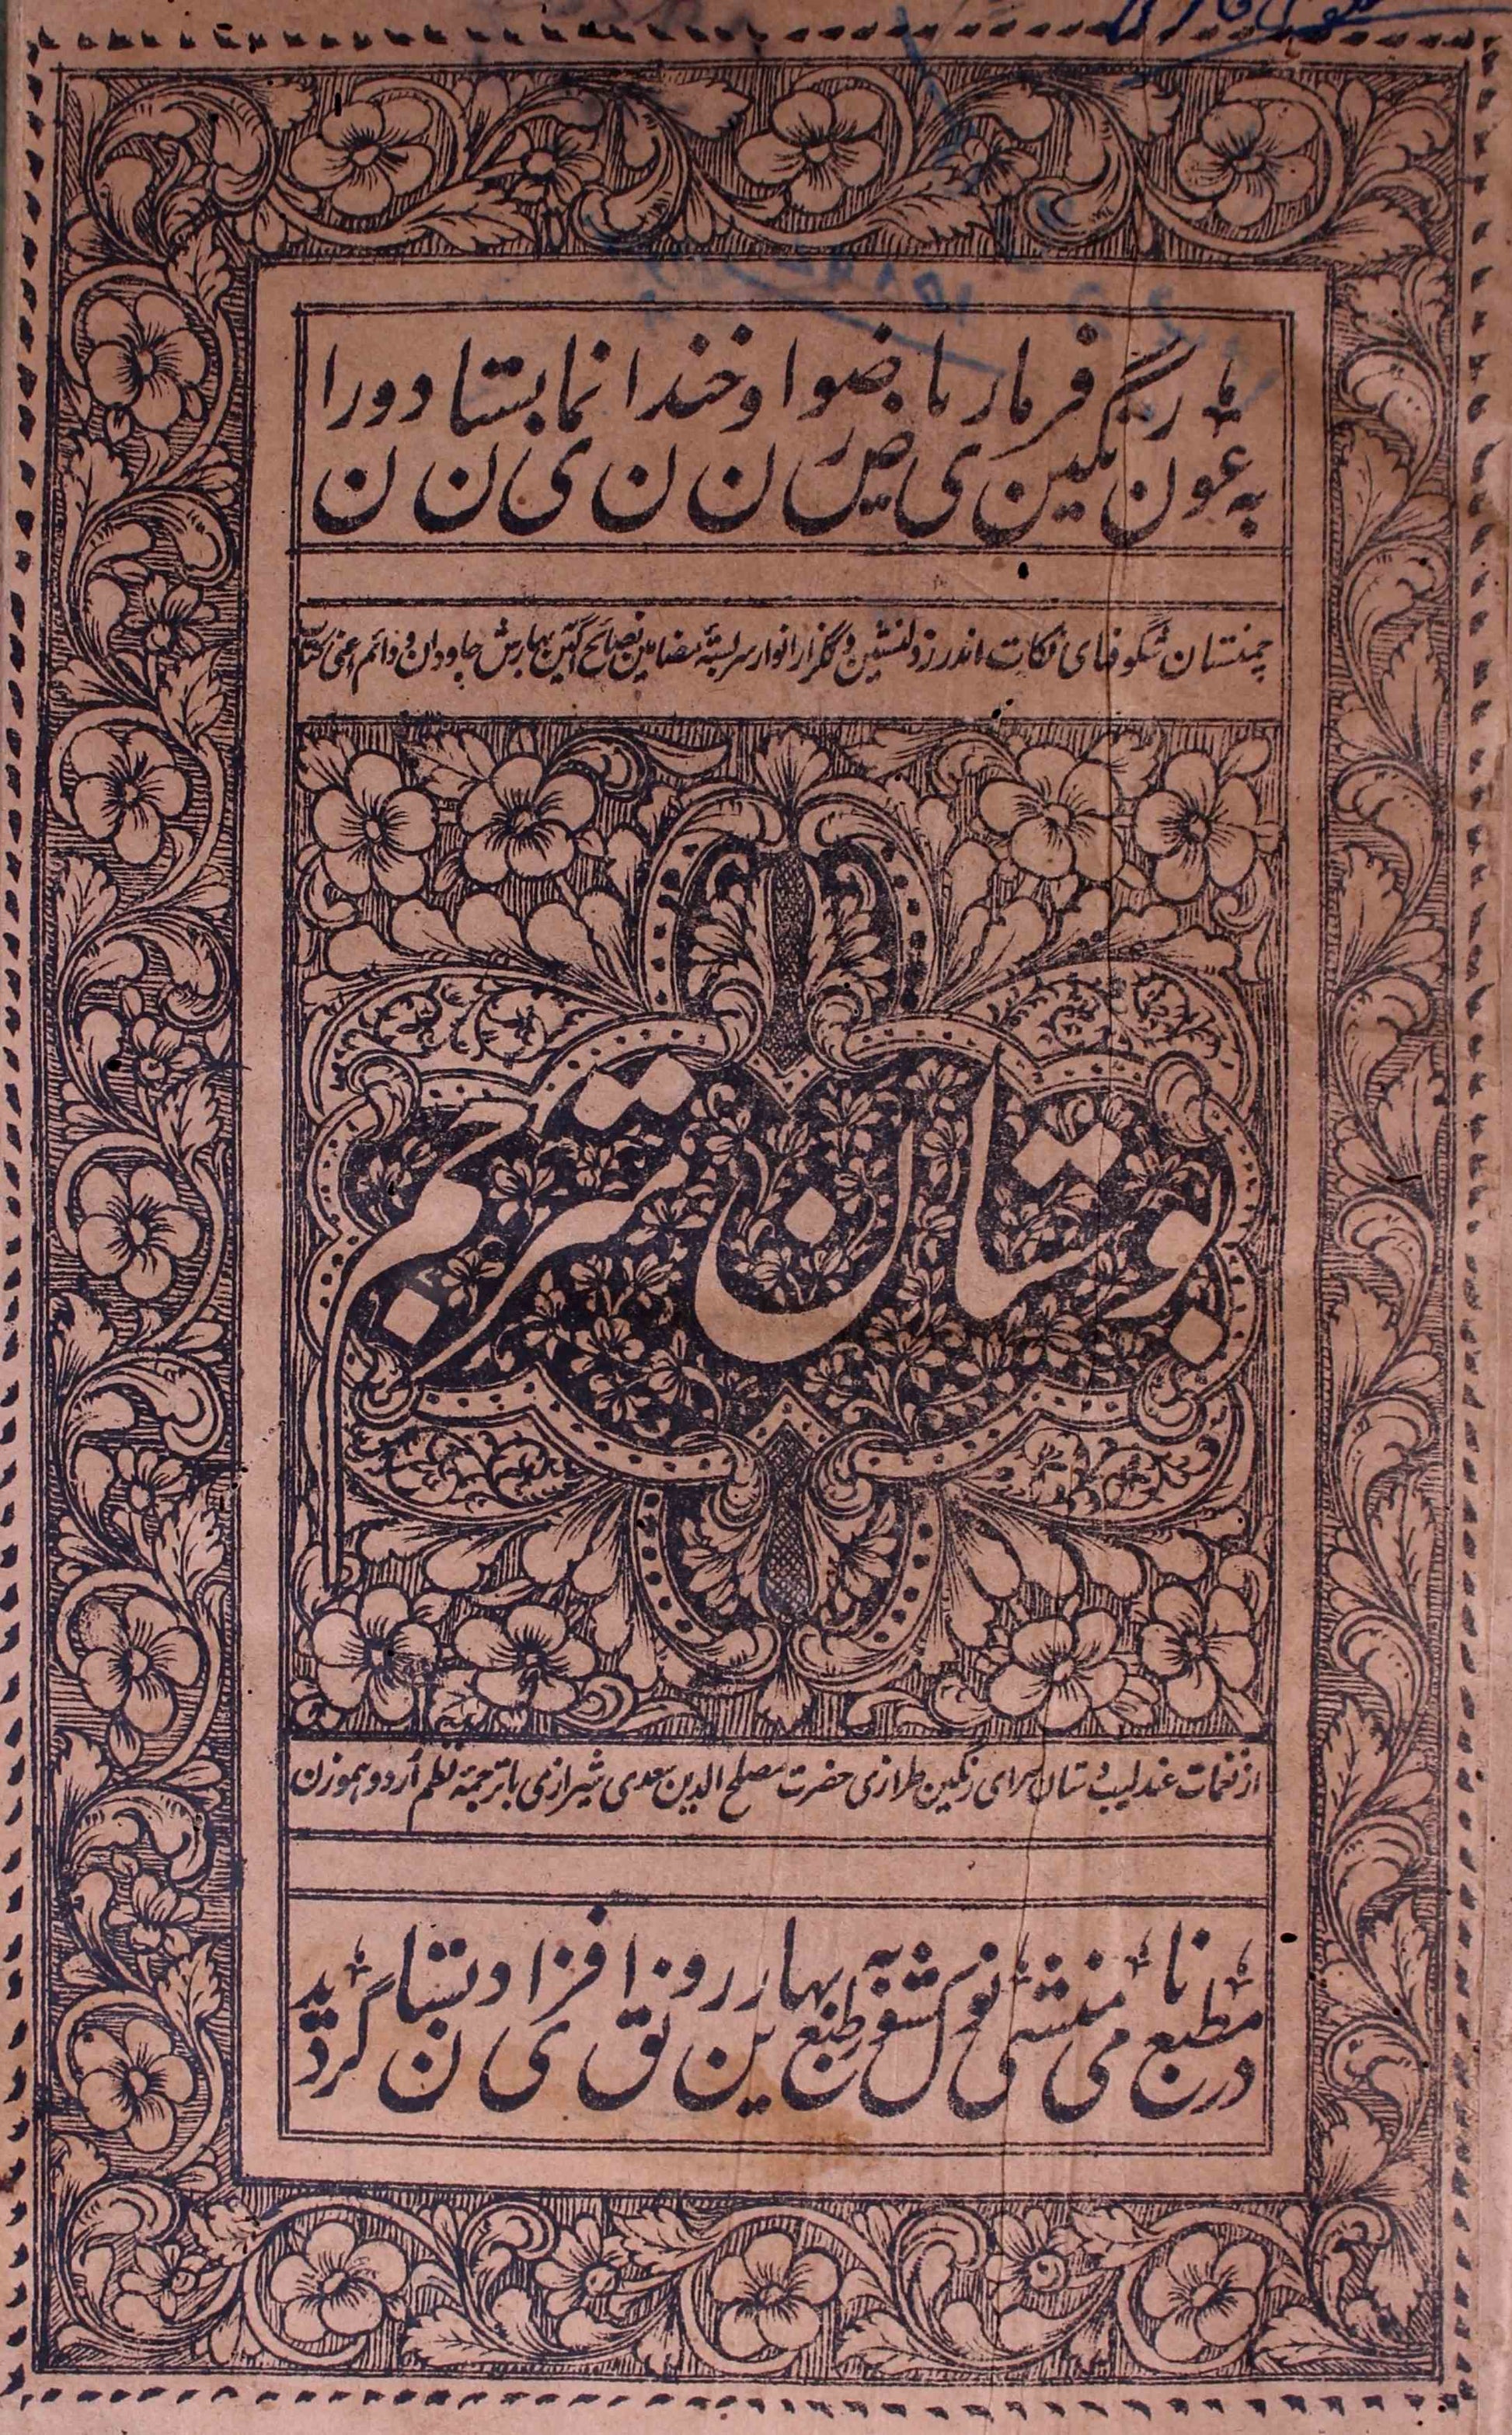 به عون رنگینی فرمای ریاض رضوان و خندانی نمابستان دوران
چمنستان شگوفهای نکات اندرز دلنشین و گلزار انوار سربستهٔ مضامین نصائح آگین بهارش جاودان و دائم اعنی کتاب
بوستان مترجم
از نغمات عندلیب بستان سرای رنگین طرازی حضرت مصلح الدین سعدی شیرازی با ترجمهٔ نظم اردو هموزن
در مطبع نامی منشی نولکشور بہ طبع بہارین رونق افزای دبستان گردید